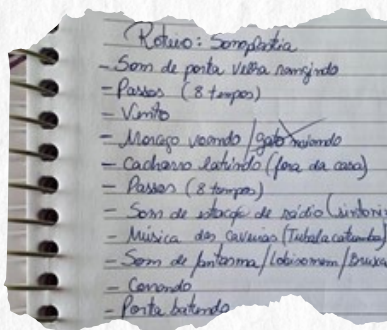 Roteiro: Sonoplastia
- Som de porta velha rangindo
- Passos (8 tempos)
- Vento
- Morcego voando / gato miando
- Cachorro latindo (fora da casa)
- Passos (8 tempos)
- Som de estação de rádio (sintoni
- Música das caveiras (Tubalacatumba)
- Som de fantasma/Lobisomem/Bruxa
- Correndo
- Porta batendo